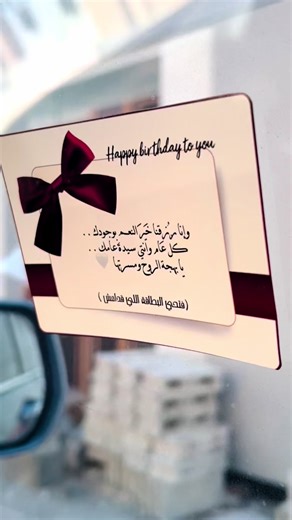 Happy birthday to you
وإنا رُزقنا خَيرَ النعم بوجودك . .
كل عام وأنتي سيدة عامك . .
يا بهجة الروح ومسرتها
( فتحي البطاقة اللي قدامش )